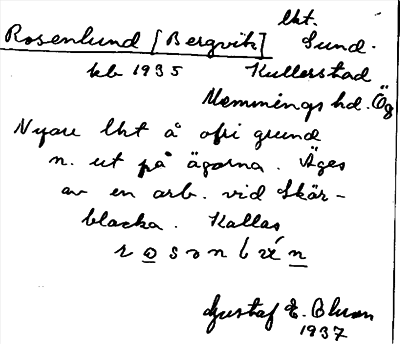 lht.
Rosenlund [Bergvik] Sund.
kb 1935 Kullerstad
Memmings hd. Ög
Nyare lht å ofri grund
n. ut på ägorna. Äges
av en arb. vid Skär-
blacka. Kallas
Gustaf E. Bluom
1937